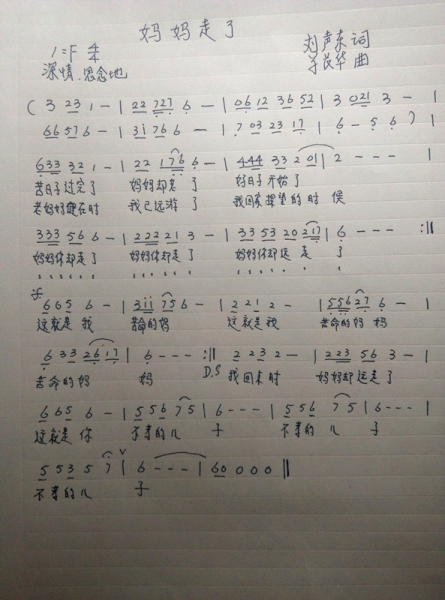 妈妈走了
1=F 4/4 刘声东 词
深情、思念地 于良华 曲
( 3 23 1 - | 22 727 6 - | 06 12 36 52 | 3 021 3 - |
66 576 - | 31 76 6 - | 7 03 23 17 | 6 - 5 6 ) |
633 32 1 - | 22 176 6 - | 444 33 2 01 | 2 - - - |
苦日子过完了 妈妈却老了 好日子开始了
老妈妈健在时 我已远游了 我回来探望的时候
333 56 6 - | 222 21 3 - | 33 53 20 217 | 6 - - - :||
妈妈你却走了 妈妈你却走了 妈妈你却远走了
665 6 - | 311 756 - | 2 21 2 - | 556 27 6 - |
这就是我 苦命的妈 这就是我 苦命的妈妈
6 33 26 17 | 6 - - - :|| 2 2 3 2 - | 223 56 3 - |
苦命的妈 妈 D.S 我回来时 妈妈却远走了
665 6 - | 556 75 | 6 - - - | 556 75 | 6 - - - |
这就是你 不孝的儿 子 不孝的儿 子
5 53 5 7 | 6 - - - | 60 0 0 0 ||
不孝的儿 子